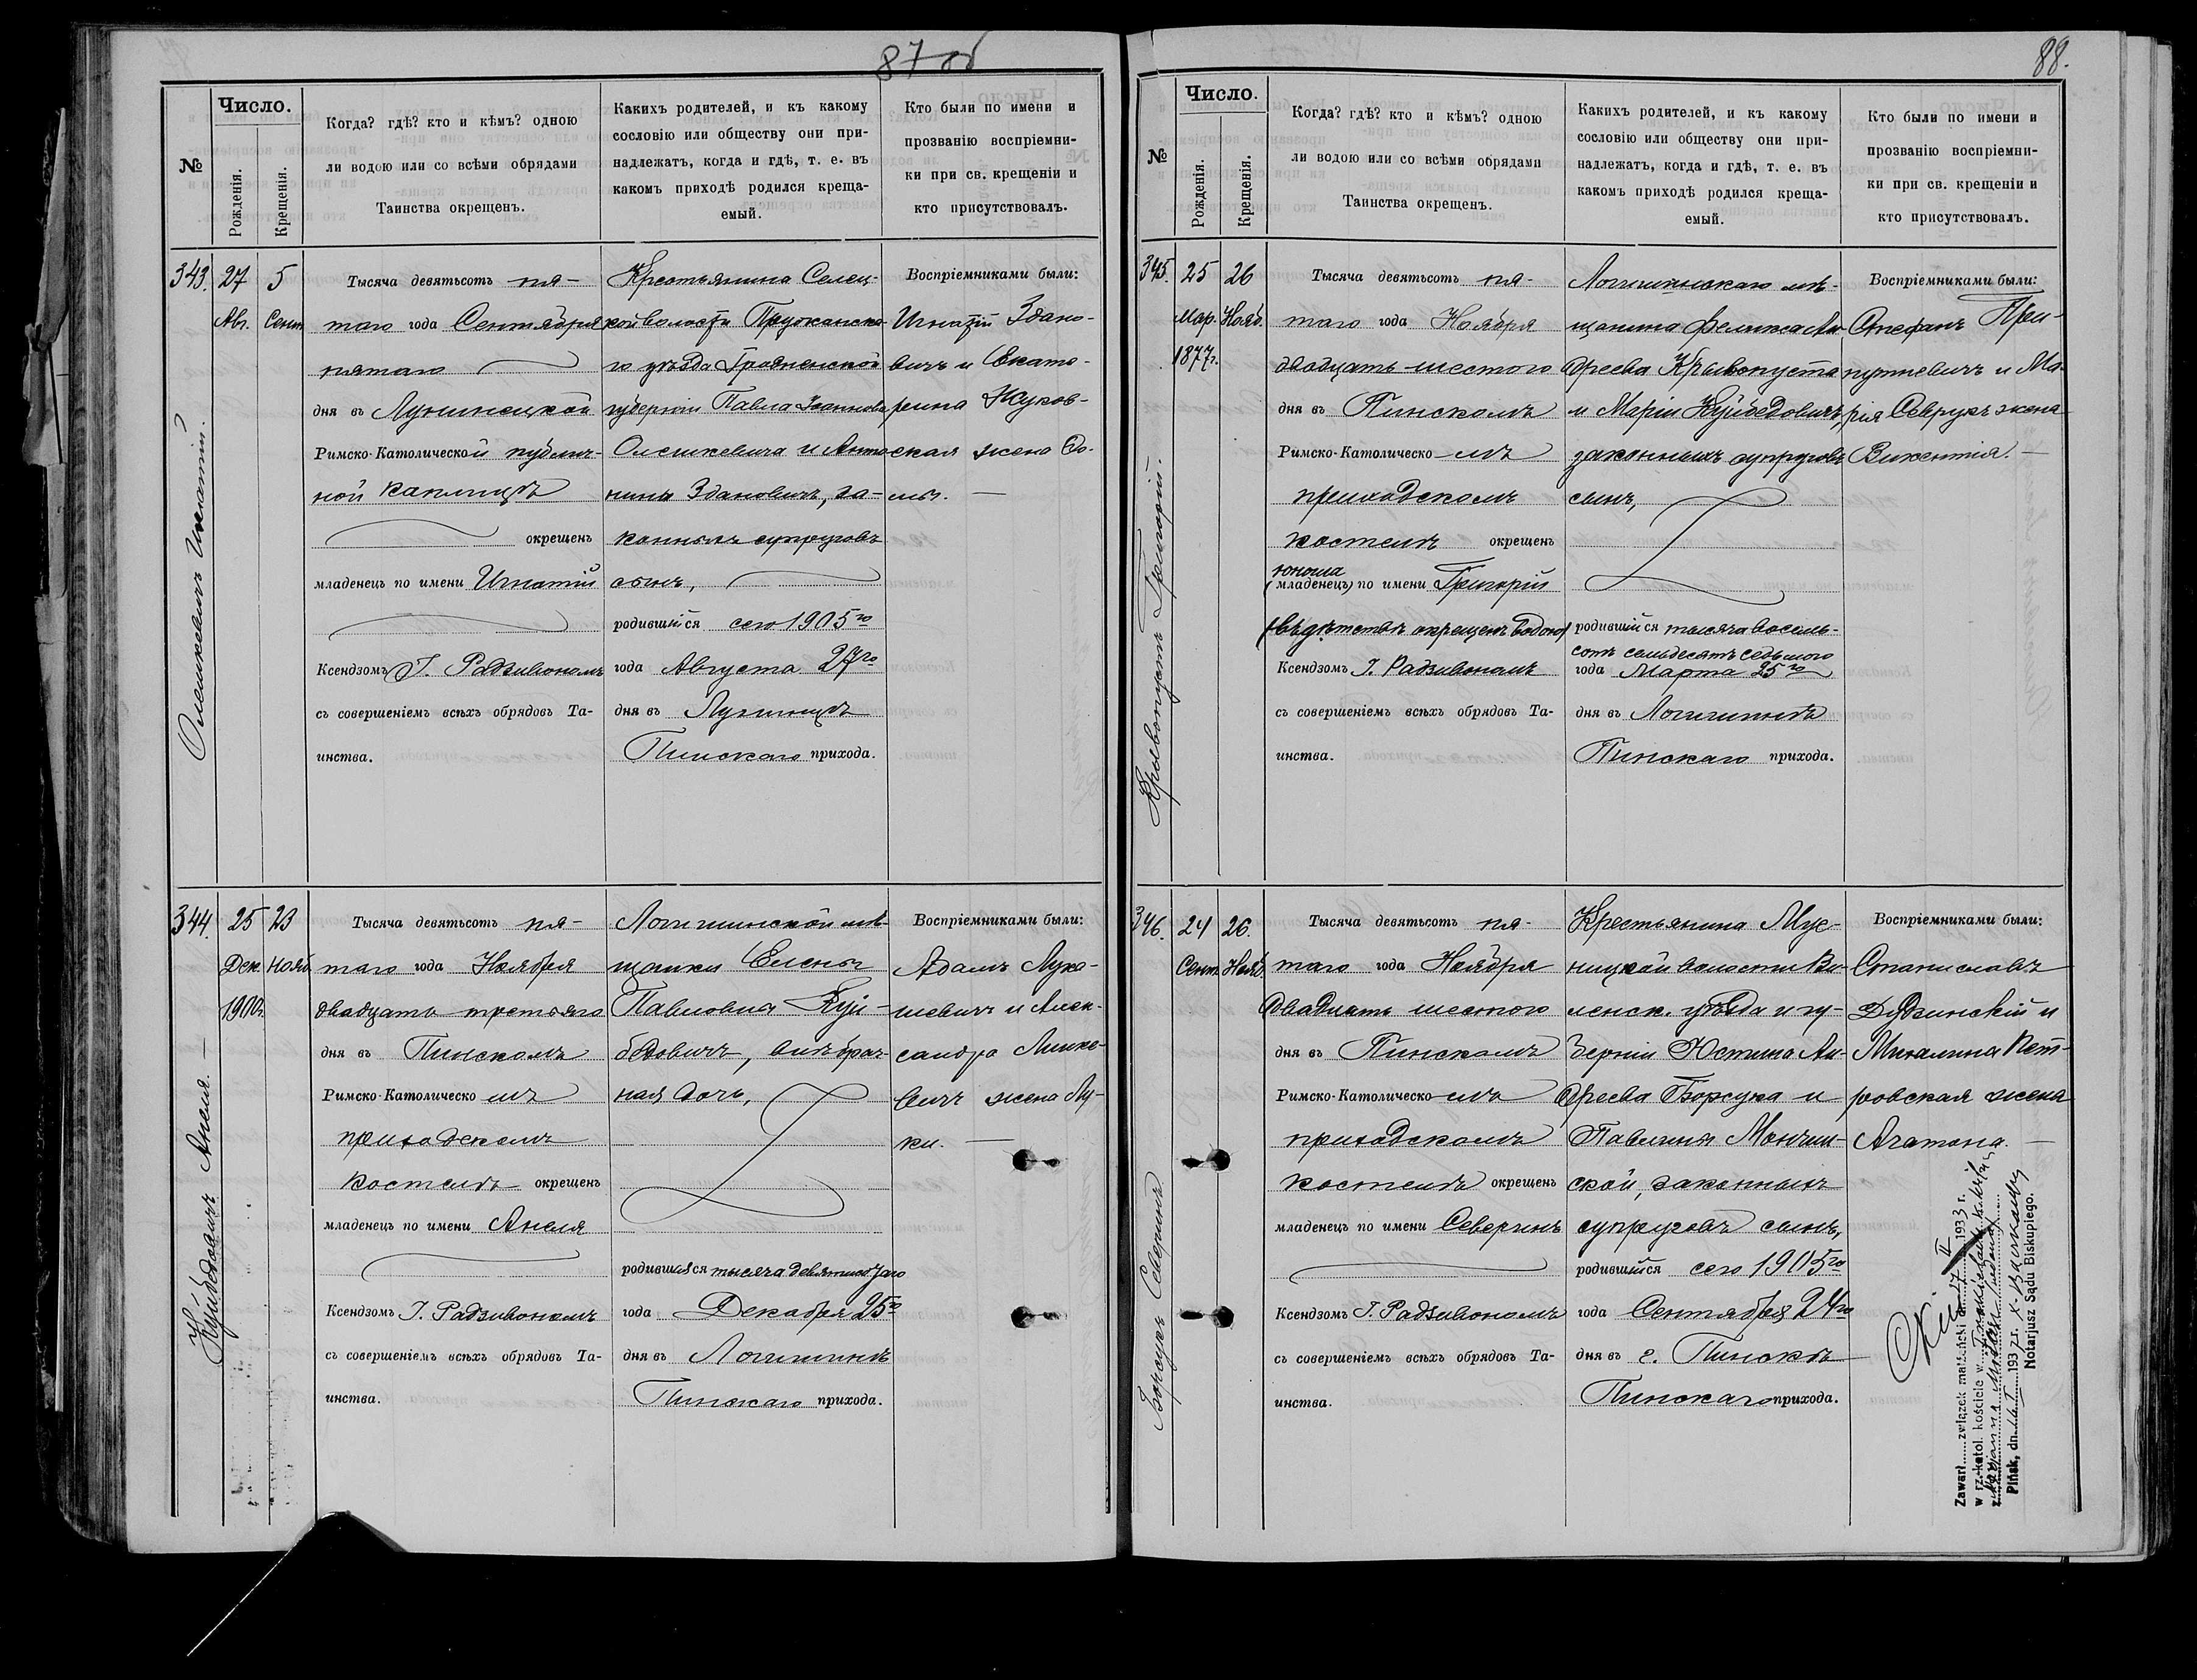 87 об
№
Число.
Рожденія.
Крещенія.
Когда? гдѣ? кто и кѣмъ? одною
ли водою или со всѣми обрядами
Таинства окрещенъ.
Какихъ родителей, и къ какому
сословію или обществу они при-
надлежатъ, когда и гдѣ, т. е. въ
какомъ приходѣ родился креща-
емый.
Кто были по имени и
прозванію воспріемни-
ки при св. крещеніи и
кто присутствовалъ.
343.
Олешкевичъ Игнатій.
27
Авг.
5
Сент.
Тысяча девятьсотъ пя-
таго года Сентября
пятаго
дня въ Лунинецкой
Римско-Католической публич-
ной каплицѣ
окрещенъ
младенецъ по имени Игнатій
Ксендзомъ І. Радзивономъ
съ совершеніемъ всѣхъ обрядовъ Та-
инства.
Крестьянина Селец-
кой волости Пружанска-
го уѣзда Гродненской
губерніи Павла Іоаннова
Олешкевича и Анто-
нины Здановичъ, за-
конныхъ супруговъ
сынъ,
родившійся сего 1905го
года Августа 27го
дня въ Лунинцѣ
Пинскаго прихода.
Воспріемниками были:
Игнатій Здано-
вичъ и Екате-
рина Жуков-
ская жена
344.
Куйбѣдовичъ Анеля.
25
Дек.
1900г.
23
Нояб.
Тысяча девятьсотъ пя-
таго года Ноября
двадцать третьяго
дня въ Пинскомъ
Римско-Католическо мъ
приходскомъ
костелѣ окрещенъ
младенецъ по имени Анеля
Ксендзомъ І. Радзивономъ
съ совершеніемъ всѣхъ обрядовъ Та-
инства.
Логишинской мѣ-
щанки Елены
Павловны Куй-
бѣдовичъ, внѣбрач-
ная дочь,
родившаяся тысяча девятисотаго
года Декабря 25го
дня въ Логишинѣ
Пинскаго прихода.
Воспріемниками были:
Адамъ Лука-
шевичъ и Алек-
сандра Лишке-
вичъ жена Лу-
ки.
88.
№
Число.
Рожденія.
Крещенія.
Когда? гдѣ? кто и кѣмъ? одною
ли водою или со всѣми обрядами
Таинства окрещенъ.
Какихъ родителей, и къ какому
сословію или обществу они при-
надлежатъ, когда и гдѣ, т. е. въ
какомъ приходѣ родился креща-
емый.
Кто были по имени и
прозванію воспріемни-
ки при св. крещеніи и
кто присутствовалъ.
345.
Кривопустъ Григорій.
25
Мар.
1877г.
26
Нояб.
Тысяча девятьсотъ пя-
таго года Ноября
двадцать шестого
дня въ Пинскомъ
Римско-Католическо мъ
приходскомъ
костелѣ окрещенъ
юноша
(младенецъ) по имени Григорій
(въ дѣтствѣ окрещенъ водою)
Ксендзомъ І. Радзивономъ
съ совершеніемъ всѣхъ обрядовъ Та-
инства.
Логишинскаго мѣ-
щанина Феликса Ан-
дреева Кривопуста
и Маріи Куйбѣдовичъ,
законныхъ супруговъ
сынъ,
родившійся тысяча восемь-
сотъ семьдесятъ седьмого
года Марта 25го
дня въ Логишинѣ
Пинскаго прихода.
Воспріемниками были:
Стефанъ
и Ма-
рія Севрукъ жена
Викентія.
346.
Борсукъ Северинъ
24
Сент.
26.
Нояб.
Тысяча девятьсотъ пя-
таго года Ноября
двадцать шестого
дня въ Пинскомъ
Римско-Католическо мъ
приходскомъ
костелѣ окрещенъ
младенецъ по имени Северинъ
Ксендзомъ І. Радзивономъ
съ совершеніемъ всѣхъ обрядовъ Та-
инства.
Крестьянина Мус-
ницкой волости Ви-
ленск. уѣзда и гу-
берніи Юстина Ан-
дреева Борсука и
Павлины Мончин-
ской, законныхъ
супруговъ сынъ,
родившійся сего 1905го
года Сентября 24го
дня въ г. Пинскѣ
Пинскаго прихода.
Воспріемниками были:
Станиславъ
Дудзинскій и
Михалина Пет-
ровская жена
Агатона.
Zawarł związek małżeński dn. 17 II 1933 r.
w rz.-katol. kościele w
z Marjanną
Pińsk, dn. 193 r.
Notarjusz Sądu Biskupiego.